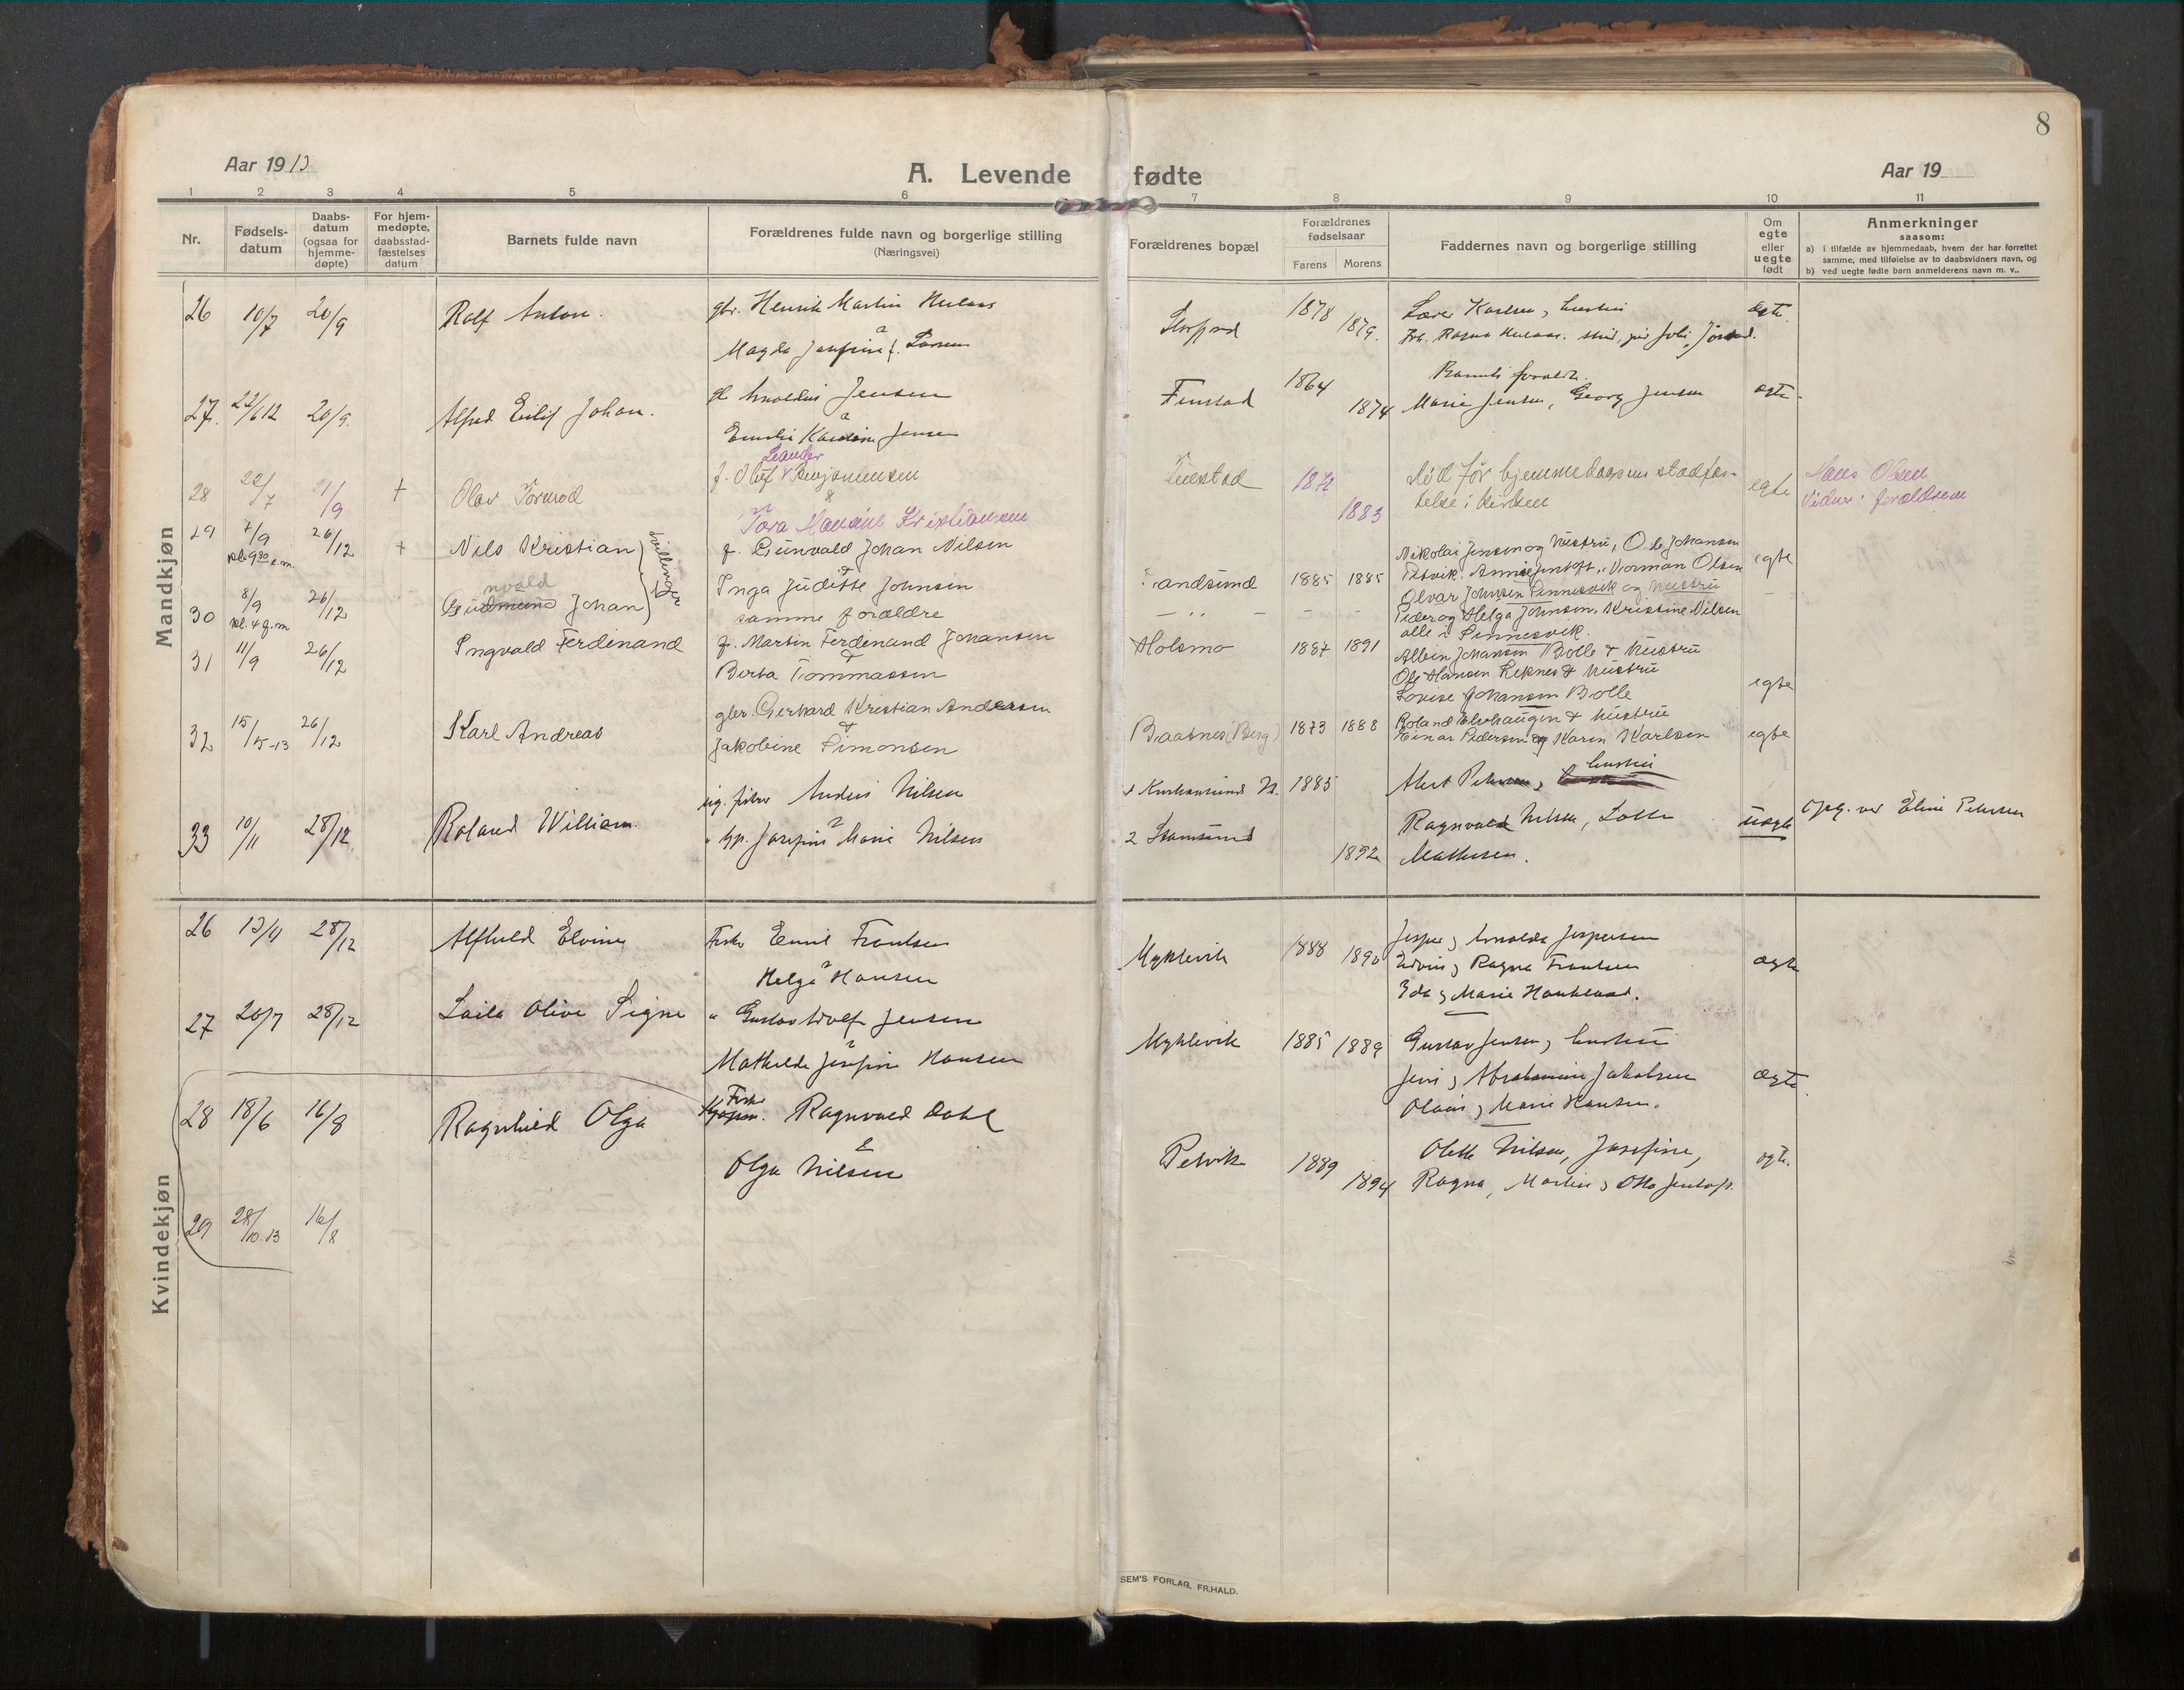 8
Aar 1913
A. Levende fødte
Aar 19
1 2 3 4 5 6 7 8 9 10 11
Nr.
Fødsels-
datum
Daabs-
datum
(ogsaa for
hjemme-
døpte)
For hjem-
medøpte,
daabsstad-
fæstelses
datum
Barnets fulde navn
Forældrenes fulde navn og borgerlige stilling
(Næringsvei)
Forældrenes bopæl
Forældrenes
fødselsaar
Farens Morens
Faddernes navn og borgerlige stilling
Om
egte
eller
uegte
født
Anmerkninger
saasom:
a) i tilfælde av hjemmedaab, hvem der har forrettet
samme, med tilføielse av to daabsvidners navn, og
b) ved uegte fødte barn anmelderens navn m. v..
Mandkjøn
26 10/7 20/9 Rolf Anton. gbr. Henrik Martin
Magda Josefine f. Larsen
1878 1879.
27. 22/6 12 20/9. Alfred Eilif Johan. Jensen
Jensen
Finstad 1864 1874 Marie Jensen, Georg Jensen
28 22/7 21/9 + Olav Tormod f. Oluf Leander Benjaminsen
&
Tora Hansine Kristiansen
1883 Død før hjemmedaapens stadfæs-
telse i kirken egte Hans Olsen
Vidner: forældrene
29 7/9 kl. 9 30 e.m. 26/12 + Nils Kristian f. Gunvald Johan Nilsen
&
Inga Juditte Johnsen
tvillinger
1885 1885 Nikolai Jensen og hustru, Ole Johansen
Petvik. Annie Jentoft, Norman Olsen egte
30 8/9 kl. 4 f.m 26/12 Gudmund nvald Johan samme forældre
Olvar Johnsen Sennesvik og hustru
Peder og Helga Johnsen, Kristine Nilsen
alle i Sennesvik.
31 11/9 26/12 Ingvald Ferdinand f. Martin Ferdinand Johansen
&
Berta Tommassen
Holsmo 1887 1891 Albin Johansen Bolle & hustru
Ole Hansen Leknes & hustru
Lovise Johansen Bolle egte
32 15/15-13 26/12 Karl Andreas gbr. Gerhard Kristian Andersen
&
Jakobine Simonsen
Baatnes (Berg) 1873 1888 Roland Elvehaugen & hustru
Einar Pedersen og Karin Karlsen egte
33 10/11 28/12. Roland William. ug. fisker Anders Nilsen
Josefine Marie Nilsen
1 Kristiansund N. 1885
2 Stamsund 1892 Ragnvald Nilsen, Lotte
Mathisen. uegte Opg. ved Eline Petersen
Kvindekjøn
26 13/11 28/12 Alfhild Elvine Fisker Emil Frantsen
&
Helga Hansen
Myklevik 1888 1890 Jesper & Arnolda Jespersen
Edvin & Ragna Frantsen
Ida & Marie Haukland. ægte
27 20/7 28/12 Laila Olive Signe " Gustav Adolf Jensen
&
Mathilde Josefine Hansen
Myklevik 1885 1889 Gustav Jensen & hustru
Jens & Abrahamine Jakobsen
Olaus & Marie Hansen. ægte
28 18/6 16/8 Ragnhild Olga Fisker Ragnvald Dahl
&
Olga Nilsen
Petvik 1889 1894 Olette Nilsen, Josefine,
Ragna, Martin & Otto Jentoft. egte.
29 28/10.13 16/8
SEM'S FORLAG, FR.HALD.